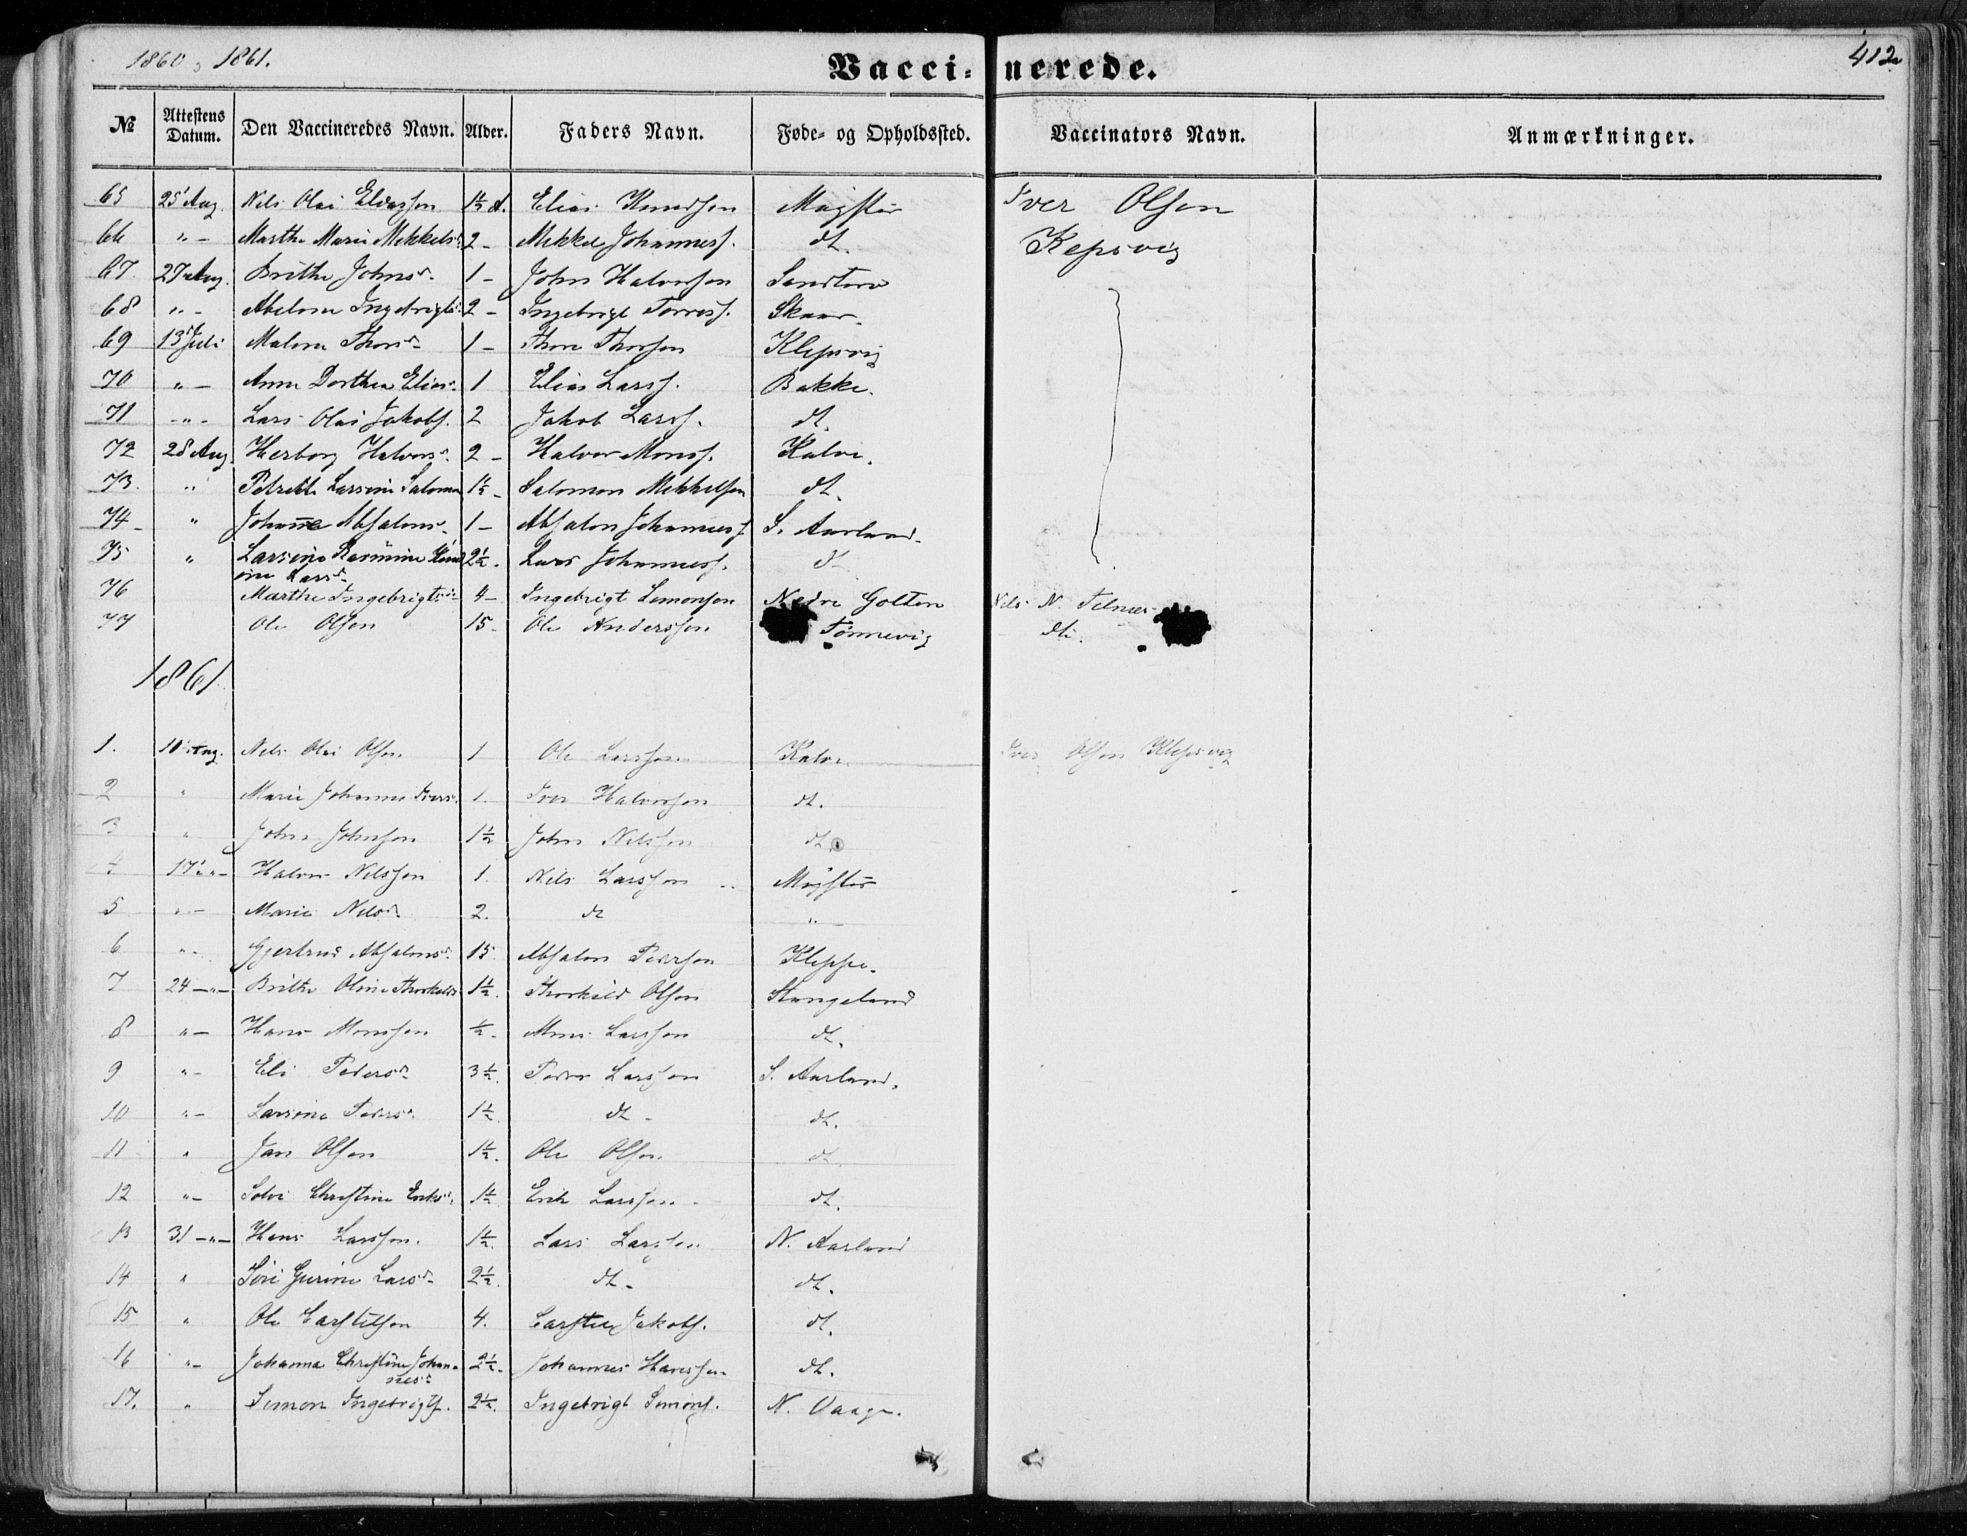 1860 & 1861.
Vaccinerede.
412
№ Attestens Datum. Den Vaccineredes Navn. Alder. Faders Navn. Føde- og Opholdssted. Vaccinators Navn. Anmærkninger.
65 25 Aug. Nils Olai Eliassen 1½ A. Elias Knudsen Møgster Iver Olsen
66 " - Marthe Marie Mekkelsd. 2 - Mekkel Johanness. dt. Klepsvig
67 27 Aug. Brithe Johnsd. 1 - John Halvorsen Sandtorv
68 " - Abelone Ingebrigtsd. 2 - Ingebrigt Torress. Skaar.
69 13 Juli Malene Thorsd. 1 - Thore Thorsen Klepsvig
70 " - Anne Dorthea Eliasd. 1 Elias Larss. Bakke.
71 " - Lars Olai Jakobs. 2 Jakob Larss. dt.
72 28 Aug. Herborg Halvorsd. 2 - Halvor Monss. Kalve.
73. " Petrikke Larsine Salomon 1½ - Salomon Mekkelsen dt.
74 - " Johanne Absalonsd. 1 - Absalon Johanness. S. Aarland.
75 " Larsine Rasmine 2½. Lars Johanness. dt
ine Larsd.
76 Marthe Ingebrigtsd. 4 - Ingebrigt Simonsen Nedre Golten Nils N. Telnæs
77 Ole Olsen 15. Ole Anderssen Tønnevig dt.
1861.
1. 10 Aug. Nils Olai Olsen 1 Ole Larssen Kalve Iver Olsen Klepsvig
2 " Marie Johanne Iversd. 1. Iver Halvorsen dt.
3 " John Johnsen 1½ John Nilssen dt.
4 17 " - Halvor Nilssen 1. Nils Larssen Møgster
5 " - Marie Nilsd. 2. dt "
6 " - Gjertrud Absalonsd. 15. Absalon Peersen Kleppe.
7 24 - " - Brithe Oline Thorkildsd. 1½. Thorkild Olsen Stangeland
8 " - Hans Monssen ½. Mons Larssen dt.
9 " - Eli Pedersd. 3½. Peder Larssen S. Aarland.
10 " - Larsine Pedersd. 1½ dt - dt.
11 " Jan Olsen 1½. Ole Olsen dt.
12 " - Solvi Christine Eriksd. 1½ Erik Larssen dt.
13 31 - " - Hans Larssen. 1½. Lars Larssen N. Aarland
14 " Siri Gurine Larsd. 2½. dt - dt.
15 " Ole Carstensen 4. Carsten Jakobs. dt.
16 " - Johanna Christine Johan- 2½. Johannes Hanssen dt.
nesd.
17. " Simon Ingebrigts. 2½. Ingebrigt Simons. N. Vaage.